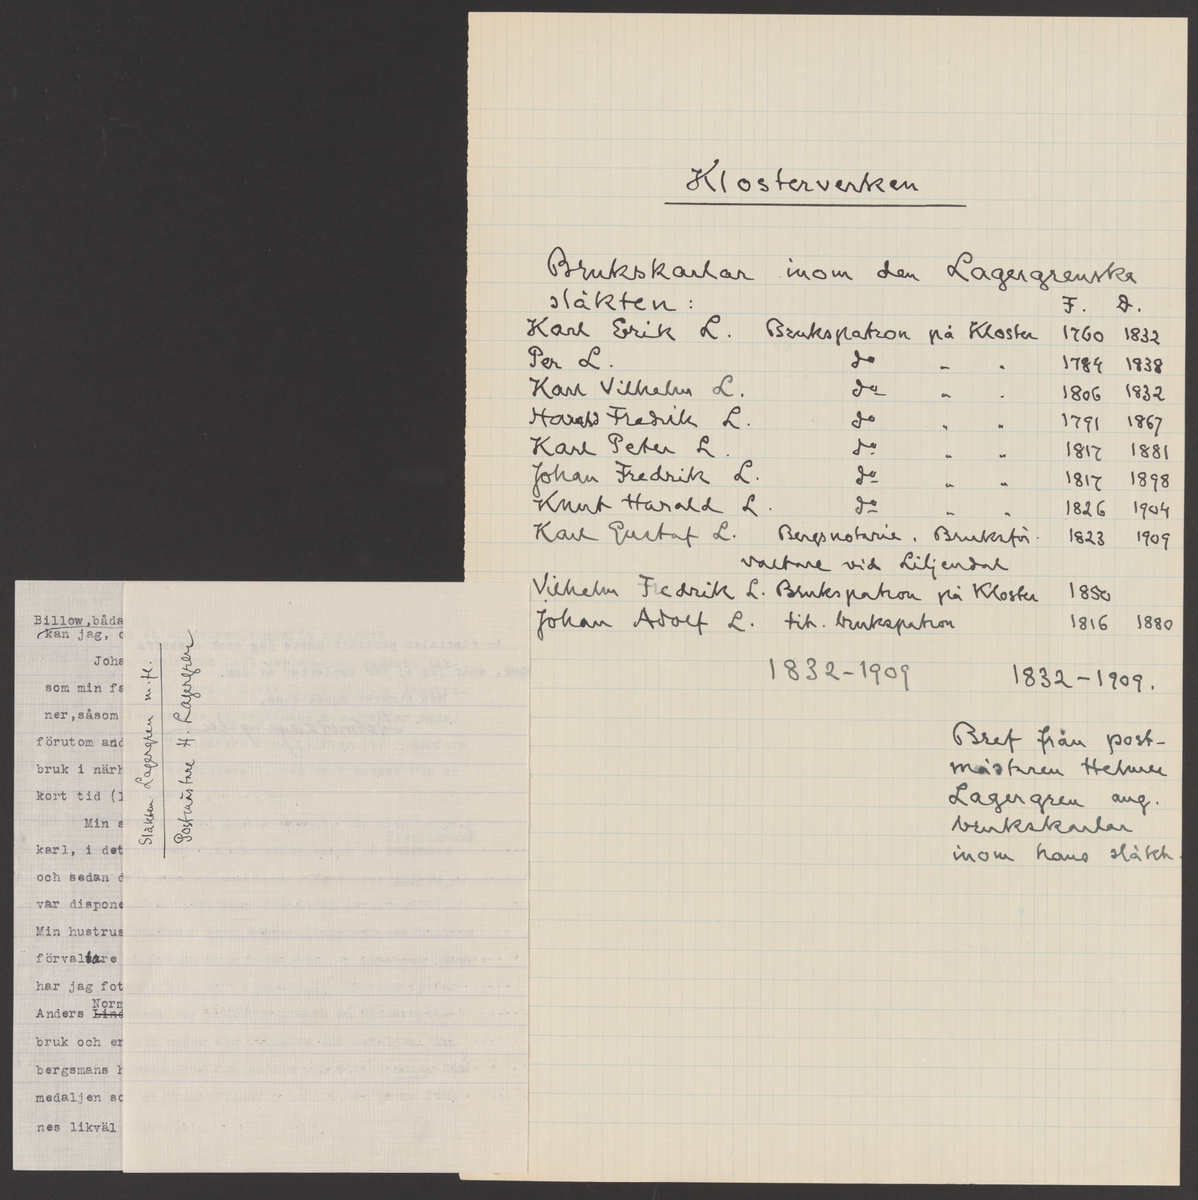 Klosterverken
Brukskarlar inom den Lagergrenska
släkten: F. D.
Karl Erik L. Brukspatron på Kloster 1760 1832
Per L. do " " 1784 1838
Karl Vilhelm L. do " " 1806 1832
Harald Fredrik L. do " " 1791 1867
Karl Peter L. do " " 1817 1881
Johan Fredrik L. do " " 1817 1898
Knut Harald L. do " " 1826 1904
Karl Gustaf L. Bergsnotarie. Bruksför- 1823 1909
valtare vid Liljendal
Vilhelm Fredrik L. Brukspatron på Kloster 1850
Johan Adolf L. tit. brukspatron 1816 1880
1832-1909 1832-1909.
Bref från post-
mästaren Helmer
Lagergren ang.
brukskarlar
inom hans släkt.
Billow, båda
kan jag, o
Joha
som min fa
ner, såsom
förutom and
bruk i närh
kort tid (1
Min s
karl, i det
och sedan d
var dispone
Min hustrus
förvaltare
har jag fot
Norm
Anders Lind
bruk och er
bergsmans h
medaljen so
nes likväl
Släkten Lagergren m.fl.
Postmästare H. Lagergren